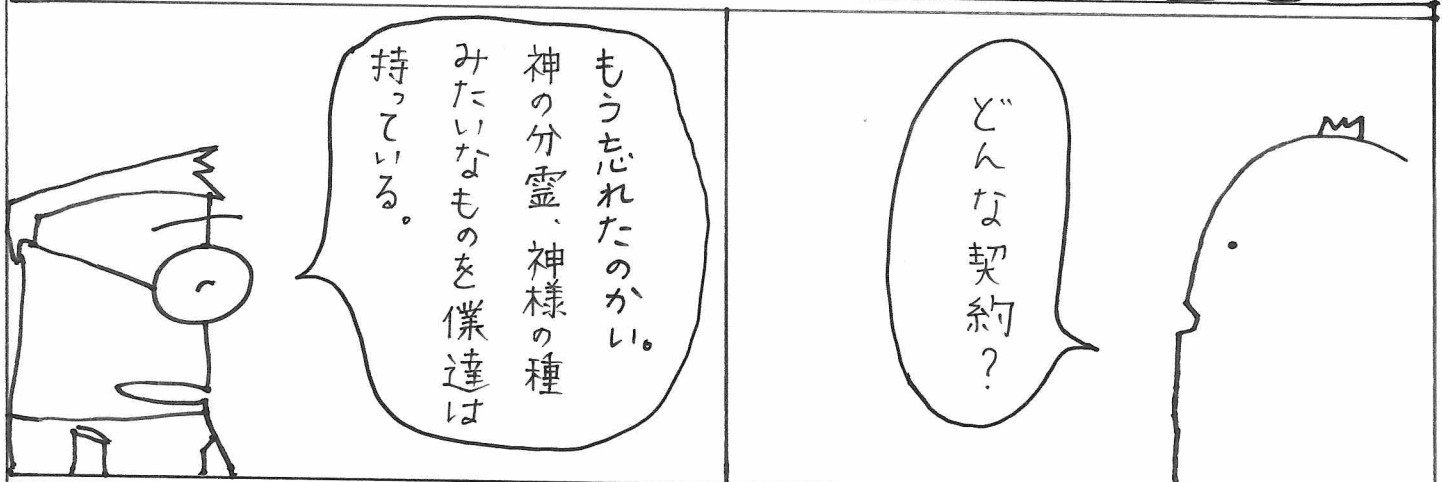 どんな契約?
もう忘れたのかい。
神の分霊、神様の種
みたいなものを僕達は
持っている。